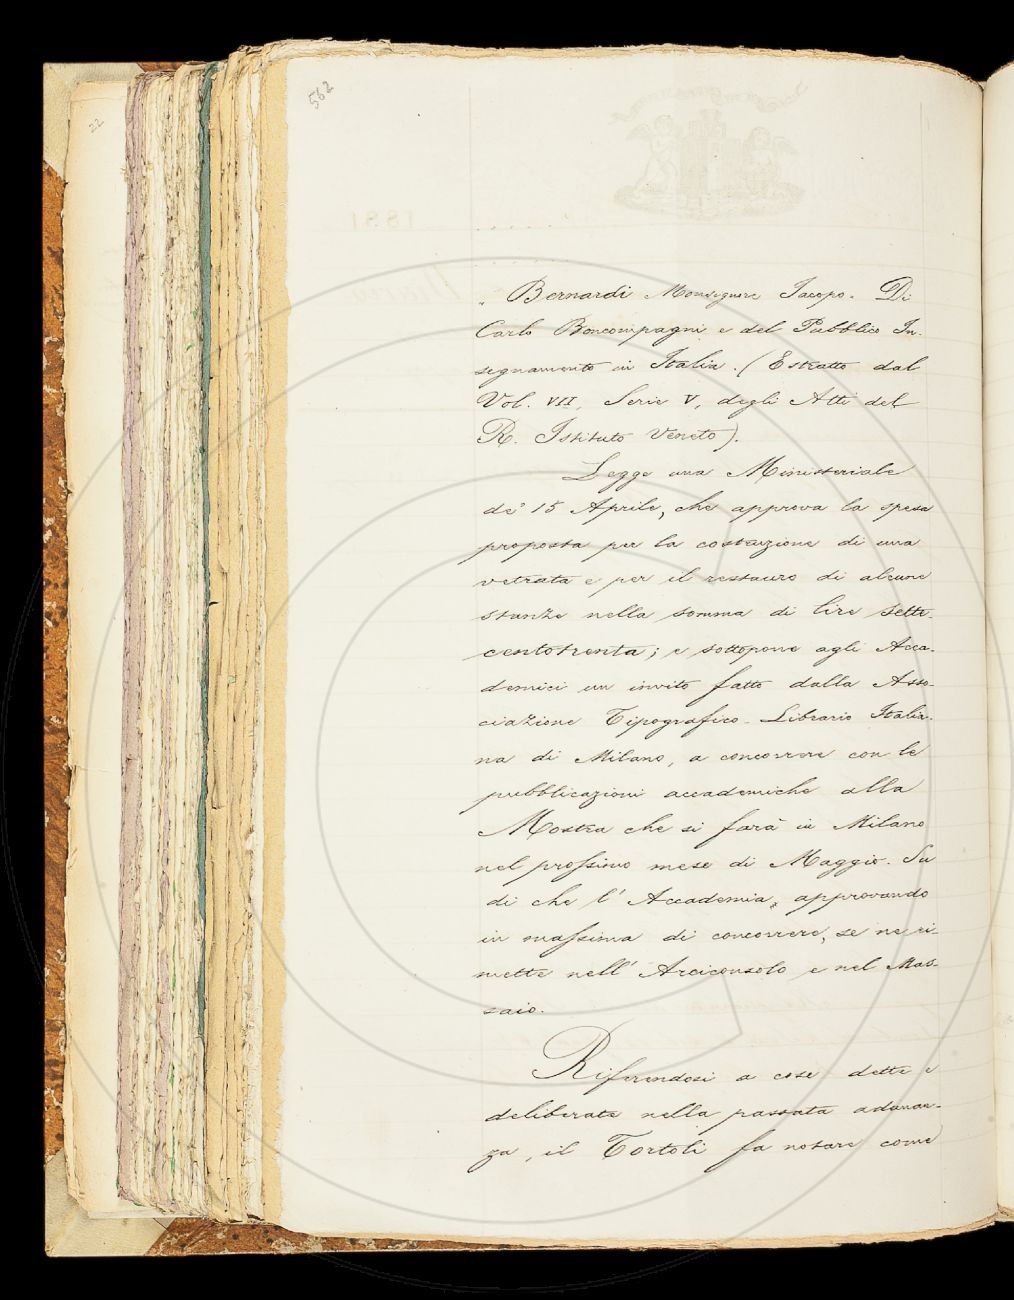 562
22
„ Bernardi Monsignore Jacopo. Di
Carlo Boncompagni e del Pubblico In-
segnamento in Italia. (Estratto dal
Vol. VII, Serie V, degli Atti del
R. Istituto Veneto).
Legge una Ministeriale
de' 15 Aprile, che approva la spesa
proposta per la costruzione di una
vetrata e per il restauro di alcune
stanze nella somma di lire sette-
centotrenta; e sottopone agli Acca-
demici un invito fatto dalla Asso-
ciazione Tipografico-Librario Italia-
na di Milano, a concorrere con le
pubblicazioni accademiche alla
Mostra che si farà in Milano
nel prossimo mese di Maggio. Su
di che l'Accademia, approvando
in massima di concorrere, se ne ri-
mette nell'Arciconsolo e nel Mas-
saio.
Riferendosi a cose dette e
deliberate nella passata adunan-
za, il Tortoli fa notare come